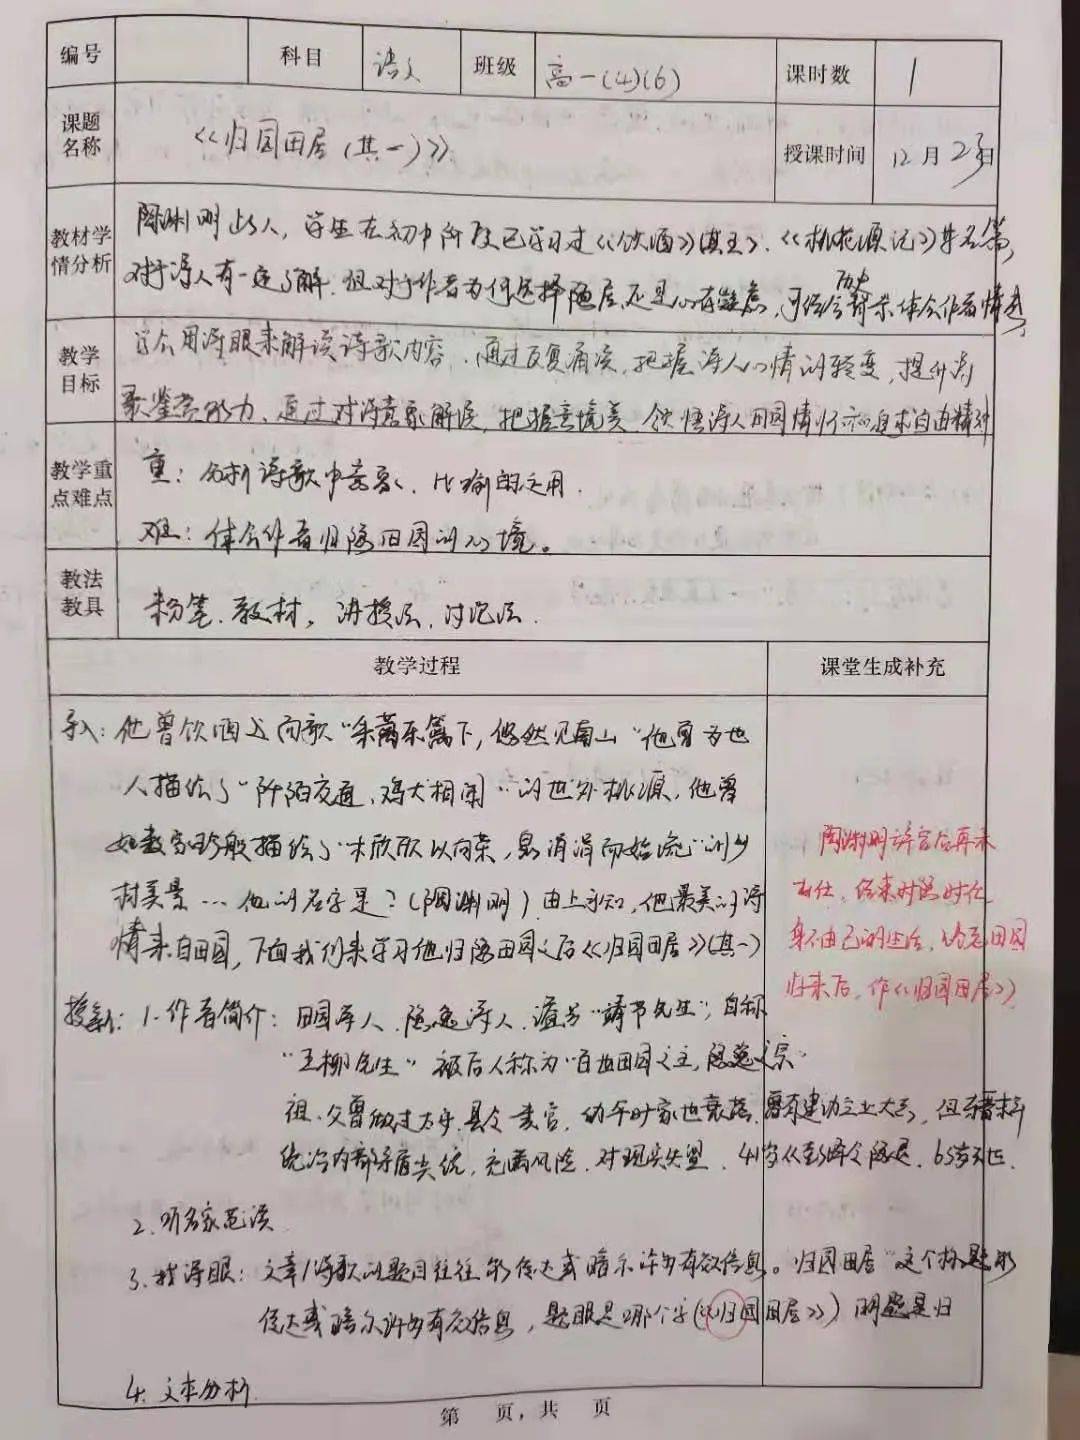 编号 科目 语文 班级 高一(4)(6) 课时数 1
课题名称 《归园田居(其一)》 授课时间 12月23日
教材学情分析
陶渊明此人，学生在初中阶段已学习过《饮酒》(其五)、《桃花源记》等名篇，
对诗人有一定了解，但对于作者为何选择隐居还是心有疑虑，可结合历史背景体会作者情感
教学目标
学会用诗眼来解读诗歌内容，通过反复诵读，把握诗人心情的转变，提升诗
歌鉴赏能力、通过对诗意象解读，把握意境美 领悟诗人田园情怀和追求自由精神
教学重点难点
重：分析诗歌中意象、比喻的运用.
难：体会作者归隐田园的心境。
教法教具
粉笔、教材，讲授法、讨论法.
教学过程 课堂生成补充
导入：他曾饮酒 而歌"采菊东篱下，悠然见南山"他曾为世
人描绘了"阡陌交通、鸡犬相闻"的世外桃源，他曾
如数家珍般描绘了"木欣欣以向荣，泉涓涓而始流"的乡
村美景…他的名字是？(陶渊明)由上可知，他最美的诗
情来自田园，下面我们来学习他归隐田园之后《归园田居》(其一)
陶渊明辞官后再未
出仕，结束时隐时仕
身不由己的生活， 田园
归来后，作《归园田居》
授新：1.作者简介：田园诗人、隐逸诗人、谥号"靖节先生"，自称
"五柳先生"被后人称为"百世田园之主，隐逸之宗"
祖、父曾做过太守、县令 官，幼年时家世衰落，曾有建功立业大志，但 晋末年
统治内部矛盾 ，充满风险，对现实失望，41岁从彭泽令隐退，63岁去世.
2.听名家范读
3.找诗眼：文章/诗歌的题目往往能传达或暗示许多有效信息。归园田居"这个标题能
传达或暗示许多有效信息，题眼是哪个字(《归园田居》) 明显是归
4.文本分析.
第 页，共 页